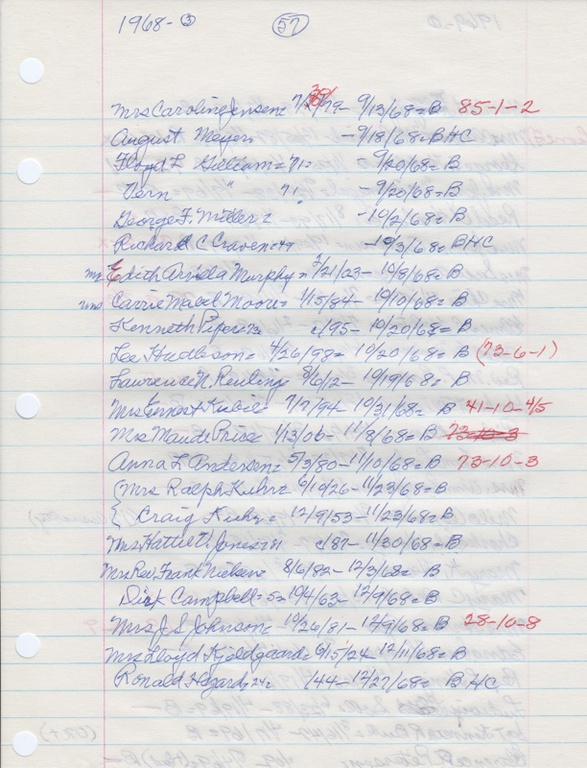 1968-③ 57
Mrs Caroline Jensen= 7/30/79- 9/13/68=B 85-1-2
August Meyer -9/18/68=BHC
Floyd L Gilliam=71= 9/20/68=B
Vern " 71= -9/20/68=B
George F. Miller= -10/2/68=B
Richard C Craven=49 -10/3/68=BHC
Mrs Edith Arvilla Murphy= 7/21/23- 10/8/68=B
Mrs Carrie Mabel Moore= 1/15/84- 10/10/68= B
Kenneth Piper= 73 c/95- 10/20/68=B
Lee Hudleson= 4/26/98= 10/20/68=B (73-6-1)
Lawrence N Reuling= 8/6/12- 10/19/68=B
Mrs Ernest Kubie= 7/7/94- 10/31/68= B 41-10-4/5
Mrs Maude Price 1/3/06- 11/8/68=B 73-10-3
Anna L Andersen= 5/3/80-11/10/68=B 73-10-3
(Mrs Ralph Kuhr= 6/10/26-11/23/68=B
{ Craig Kuhr= 12/9/53-11/23/68=B
Mrs Hattie D. Jones= 81 c/87-11/30/68=B
Mrs Rev. Frank Nielsen= 8/6/82- 12/3/68= B
Dick Campbell=5= 10/4/63- 12/9/68=B
Mrs J S Johnson= 10/26/81-12/9/68=B 28-10-8
Mrs Lloyd Kjeldgaard= 6/15/24 12/11/68=B
Ronald 24= /44-12/27/68= BHC